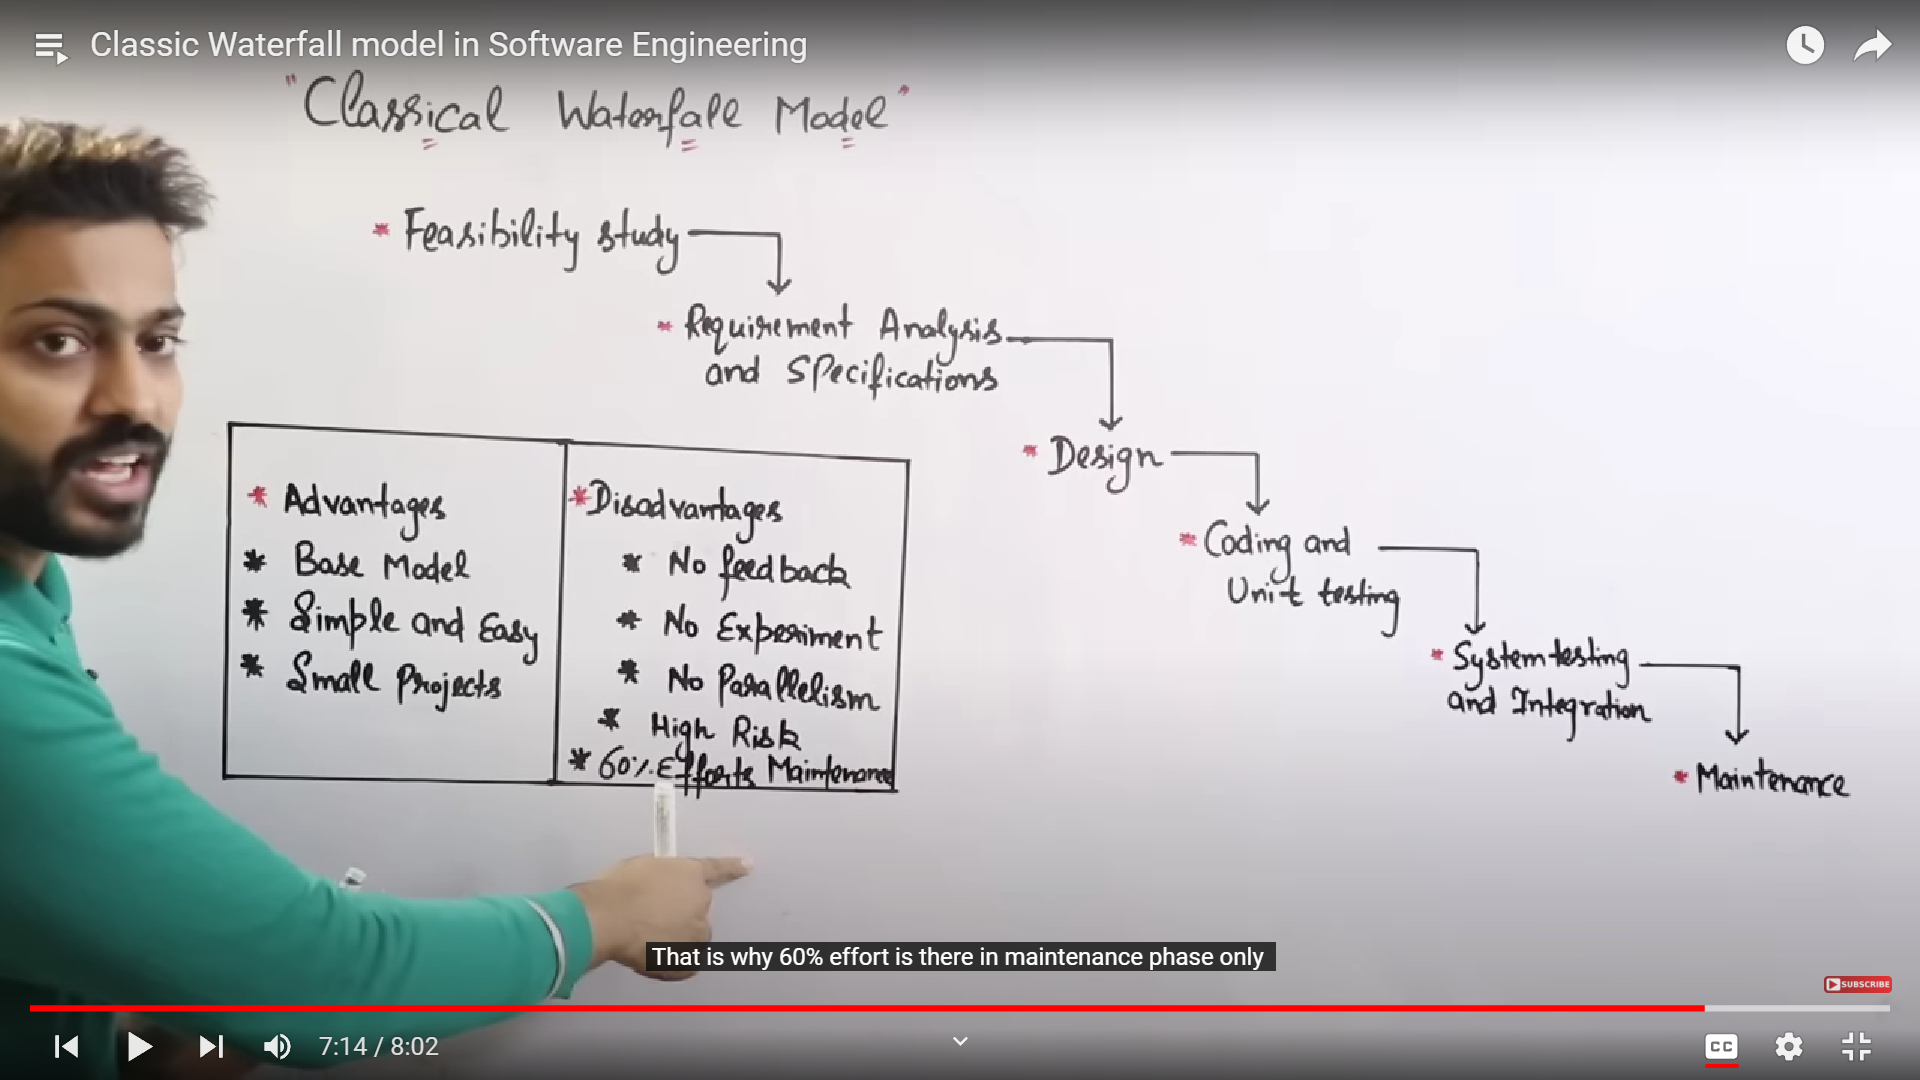 Classic Waterfall model in Software Engineering
"Classical Waterfall Model"
* Feasibility study
* Requirement Analysis
and Specifications
* Design
* Coding and
Unit testing
* System testing
and Integration
* Maintenance
* Advantages
* Base Model
* Simple and Easy
* Small Projects
* Disadvantages
* No feedback
* No Experiment
* No Parallelism
* High Risk
* 60% Efforts Maintenance
That is why 60% effort is there in maintenance phase only
SUBSCRIBE
7:14 / 8:02
CC